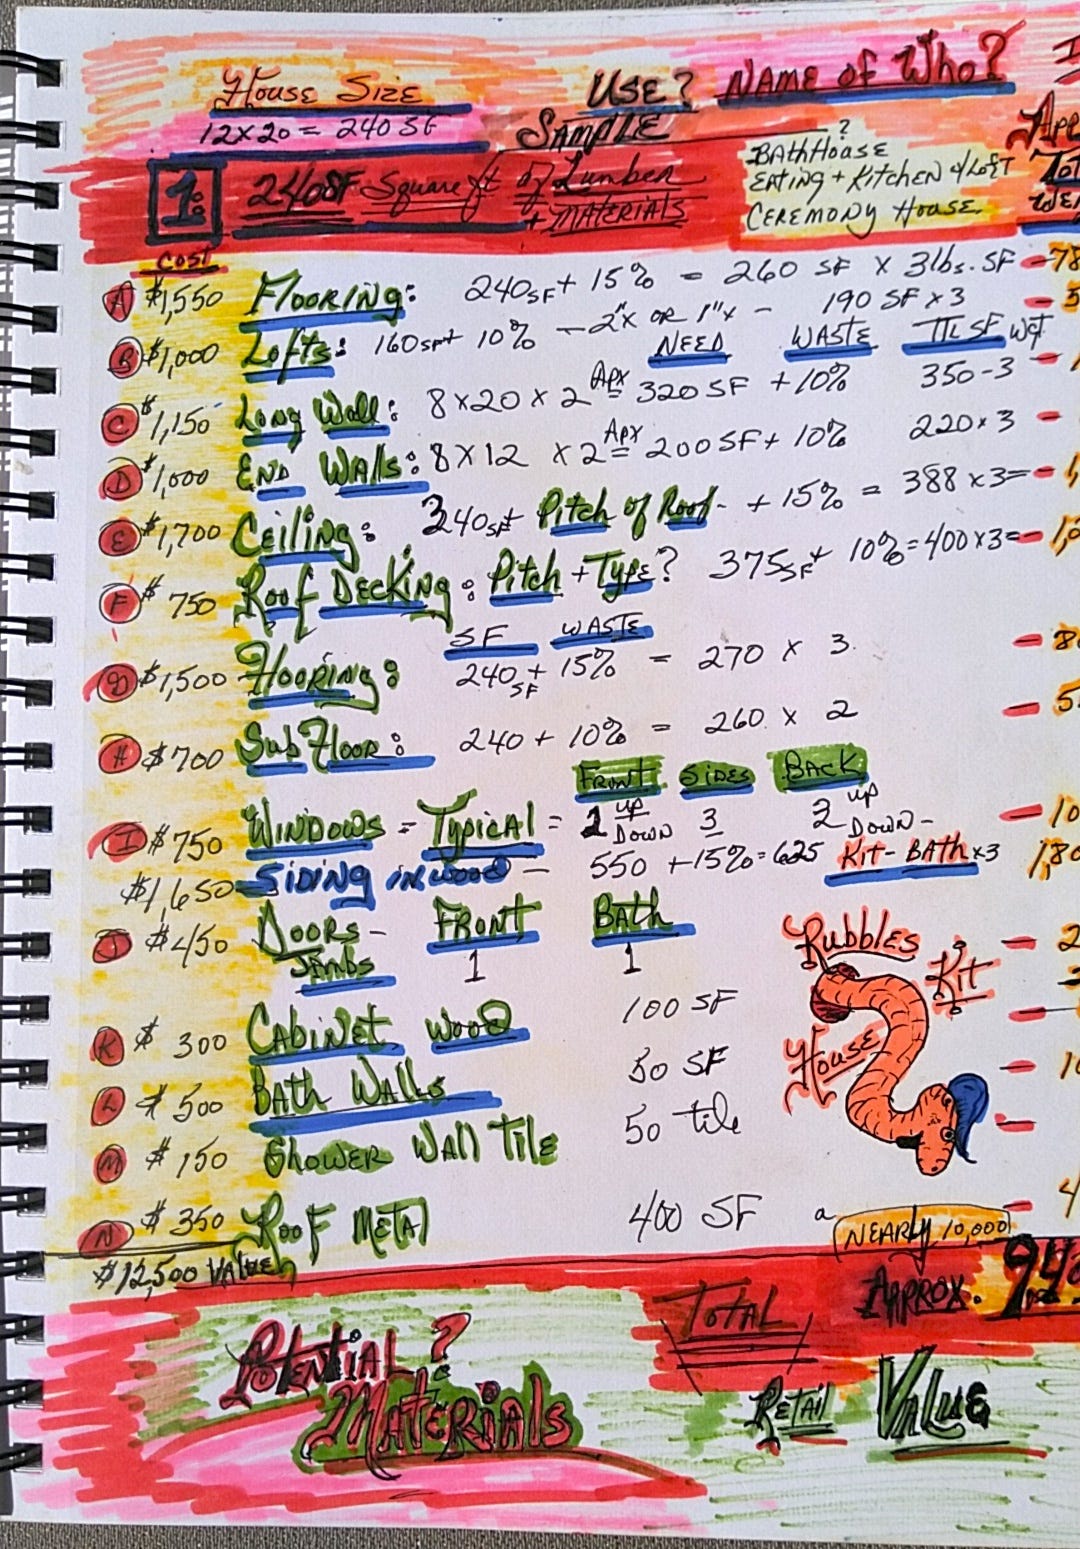 House Size
USE?
NAME of Who?
I
12x20 = 240 SF
SAMPLE ?
BATHHOUSE
EATING + KITCHEN w/Loft
CEREMONY HOUSE
1:
240SF Square ft of Lumber
+ MATERIALS
COST
A $1,550 FLOORING: 240SF + 15% = 260 SF x 3lbs. SF - 78
B $1,000 Lofts: 160SF+ 10% - 2"x OR 1"x - 190 SF x 3 - 5
NEED WASTE TTL SF WGT
C $1,150 Long Wall: 8x20 x 2 Apx = 320 SF +10% 350-3 -
D $1,000 END WALLS: 8x12 x 2 Apx = 200 SF + 10% 220x3 -
E $1,700 Ceiling: 3240SF+ Pitch of Roof - + 15% = 388 x 3= - 1,
F $750 Roof DECKING: Pitch + TYPE? 375SF + 10%=400x3= - 1,2
SF WASTE
G $1,500 Flooring: 240SF + 15% = 270 x 3 - 8
H $700 SubFloor: 240 + 10% = 260. x 2 - 5
FRONT SIDES BACK
I $750 WINDOWS = TYPICAL = 2 UP DOWN 3 2 UP DOWN - - 10
$1,650 SIDING in wood - 550 +15%=625 KIT-BATH x3 1,80
J $450 DOORS - FRONT BATH - 2
JAMBS 1 1
K $300 CABINET WOOD 100 SF -
L $500 BATH WALLS 50 SF - 10
M $150 SHOWER WALL TILE 50 tile -
N $350 ROOF METAL 400 SF - 4
Rubbles
KIT
House
a NEARLY 10,000
$12,500 VALUE
TOTAL
APPROX. 940
POTENTIAL?
MATERIALS
RETAIL VALUE